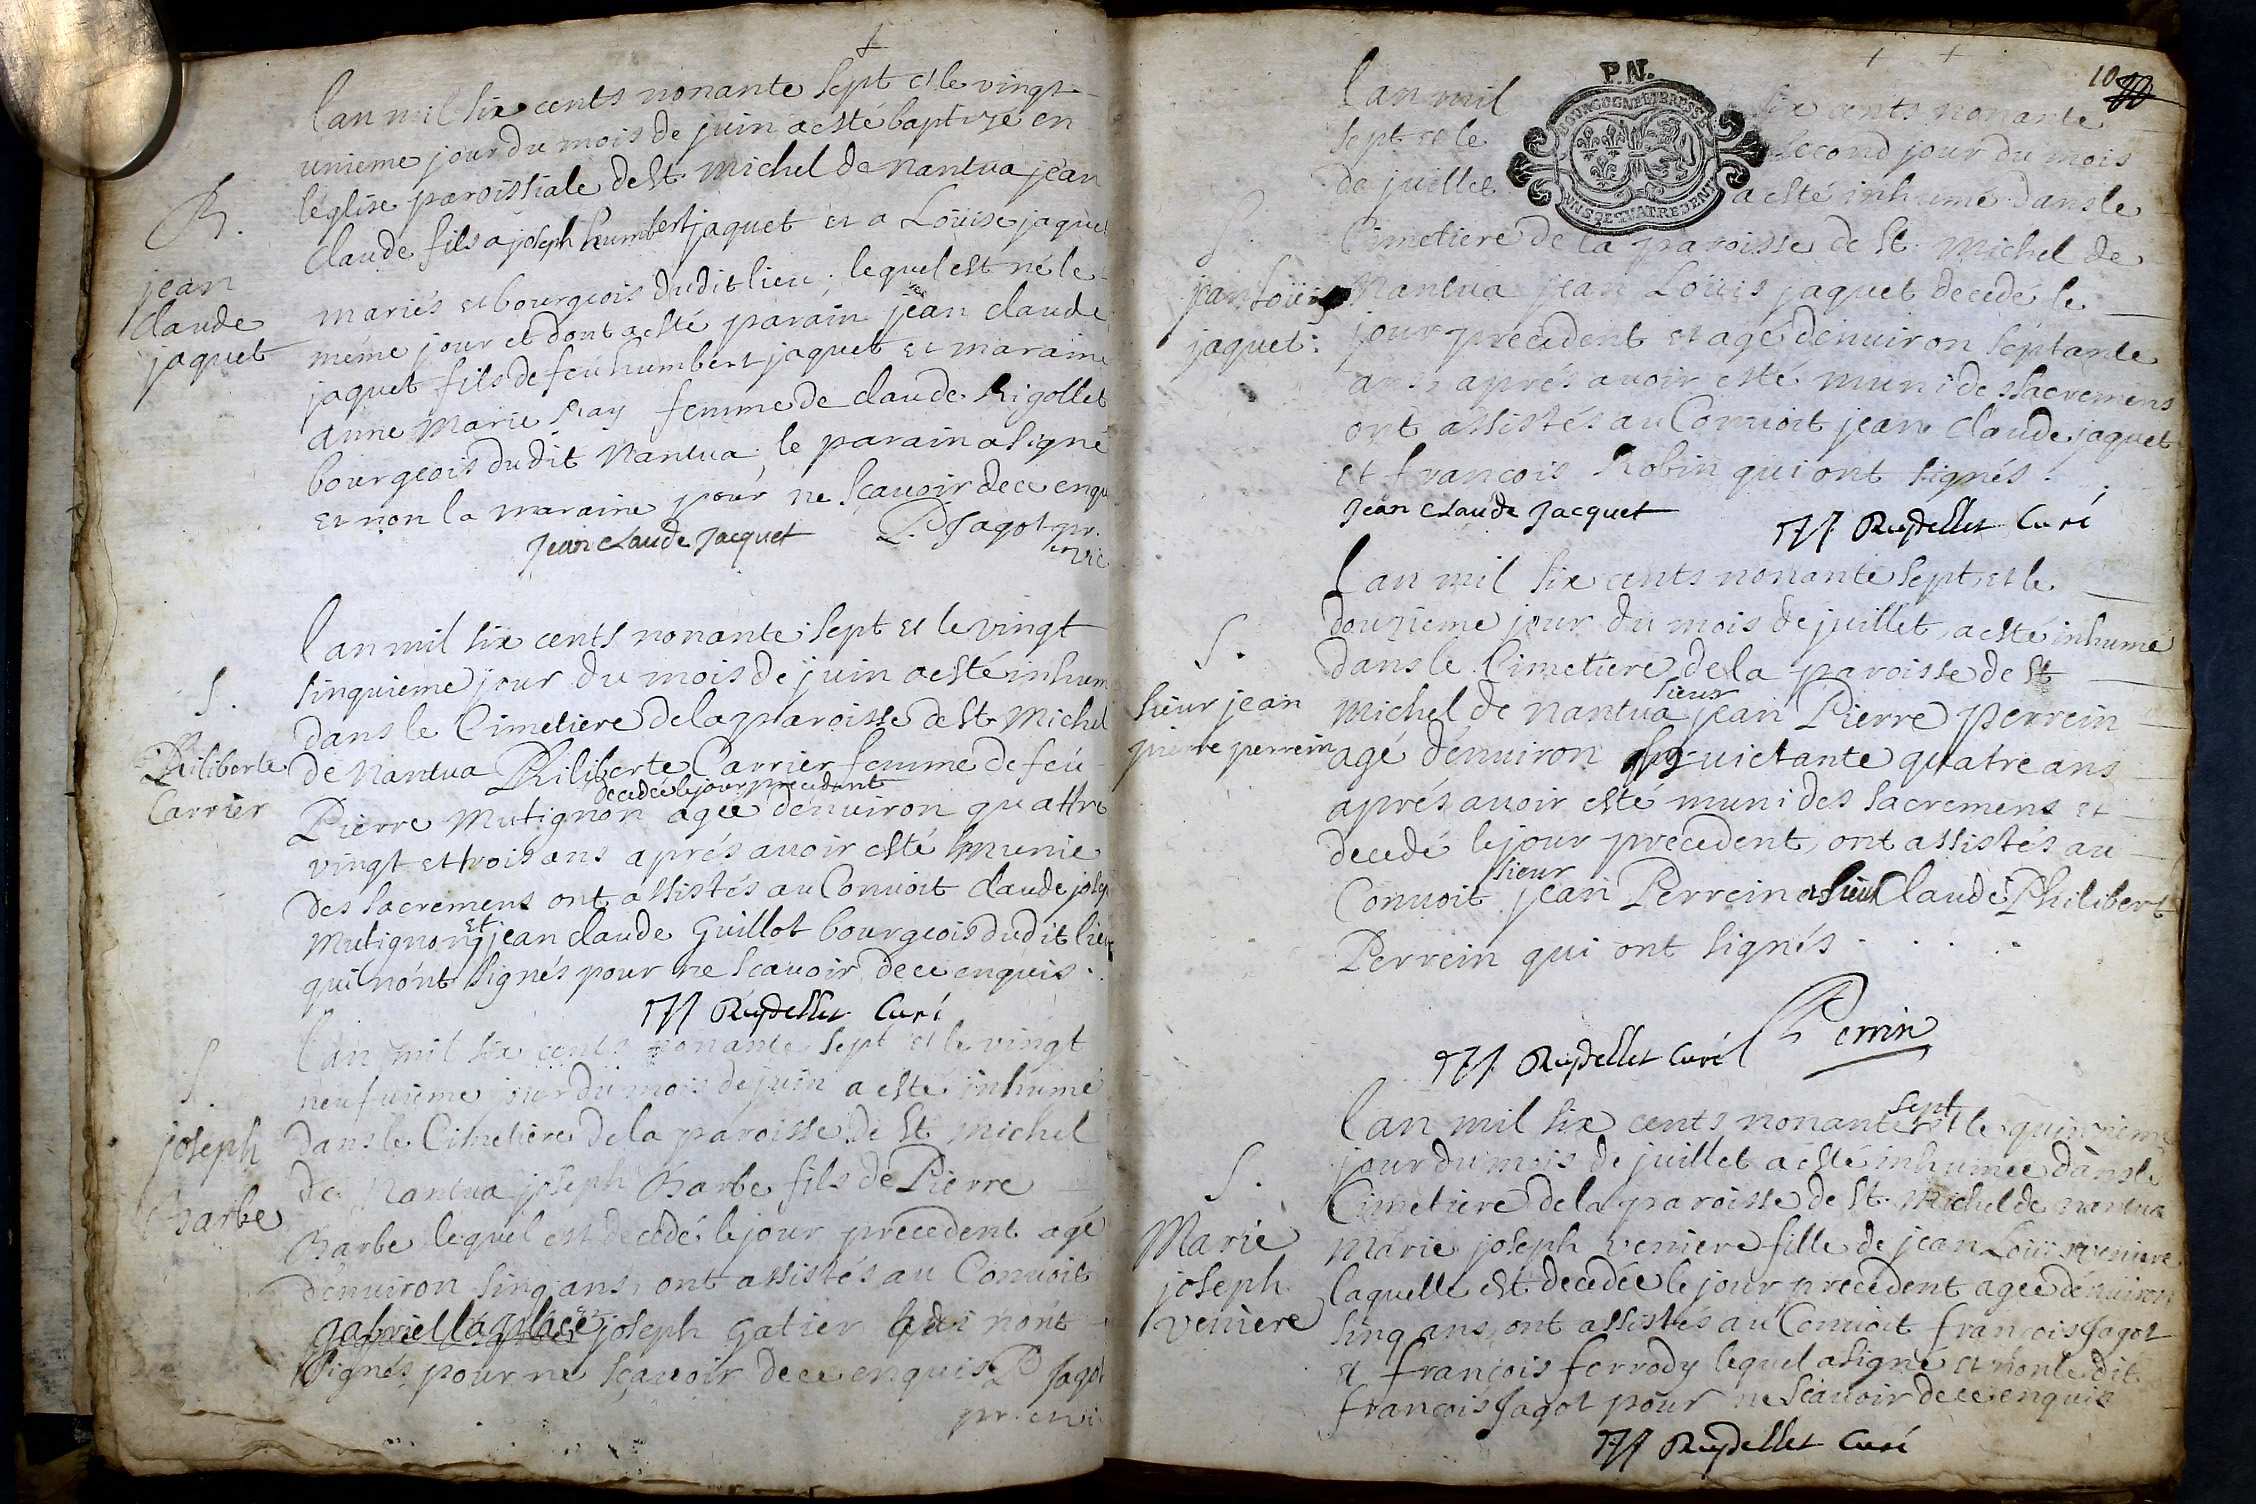 B.
jean
Claude
jaquet
lan mil six cents nonante sept et le vingt
unieme jour du mois de juin a esté baptizé en
léglise paroissiale de st. Michel de Nantua jean
Claude fils a joseph humbert jaquet et a Loüise jaquet
mariés et bourgeois dudit lieu; lequel est né le
méme jour et dont a esté parain jean claude
jaquet fils de feu humbert jaquet et maraine
anne Marie Ray femme de claude Rigollet
bourgeois dudit Nantua; le parain a signé
et non la maraine pour ne sçauoir de ce enqu
Jean Claude Jacquet P. Jagot pr.
et vic
S.
Philiberte
Carrier
lan mil six cents nonante sept et le vingt
sinquieme jour du mois de juin a esté inhum
dans le Cimetiere de la paroisse de St. Michel
de Nantua Philiberte Carrier femme de feu
decedée le jour precedent
Pierre Mutignon agée dénuiron quattre
vingt et trois ans aprés auoir esté munie
des sacremens ont assistés au Conuoit claude josep
Mutignon et jean claude Guillot bourgeois dudit lieu
qui nónt signés pour ne scauoir de ce enquis.
Ruydellet Curé
S.
joseph
Barbe
lan mil six cents nonante sept et le vingt
neufuieme jour du mois de juin a esté inhumé
dans le Cimetiere de la paroisse de St Michel
de Nantua joseph Barbe fils de Pierre
Barbe lequel est decedé le jour precedent agé
dénuiron sinq ans, ont assistés au Conuoit
gabriel la place et joseph Gatier qui nónt
signés pour ne sçauoir de ce enquis P Jagot
pr. et vi
10
P.N.
BOURGOGNE ET BRESSE
UN S DE QUATRE DEN
S.
jean Loüis
jaquet:
lan mil six cents nonante
sept et le second jour du mois
de juillet a esté inhumé dans le
Cimetiere de la paroisse de St. Michel de
Nantua jean Loüis jaquet decedé le
jour precedent et agé dénuiron septante
ans, aprés auoir esté muni de sacremens
ont assistés au Conuoit jean Claude jaquet
et francois Robin qui ont signés.
Jean Claude Jacquet
Ruydellet Curé
S.
sieur jean
pierre perrein
lan mil six cents nonante sept et le
douzieme jour du mois de juillet, a esté inhumé
dans le Cimetiere de la paroisse de St
Michel de Nantua sieur jean Pierre perrein
agé dénuiron huictante quatre ans
aprés auoir esté muni des sacremens et
decedé le jour precedent, ont assistés au
Conuoit sieur jean Perrein et sieur Claude Philibert
Perrein qui ont signés.
Ruydellet Curé Perrin
S.
Marie
joseph
veniere
lan mil six cents nonante sept et le quinzieme
jour du mois de juillet a esté inhumée dans le
Cimetiere de la paroisse de St. Michel de nantua
Marie joseph veniere fille de jean Loüis veniere
laquelle est decedée le jour precedent agée dénuiron
sinq ans, ont assistés au Conuoit françois Jagot
et françois ferrody lequel a signé et non le dit
françois Jagot pour ne scauoir de ce enquis
Ruydellet Curé